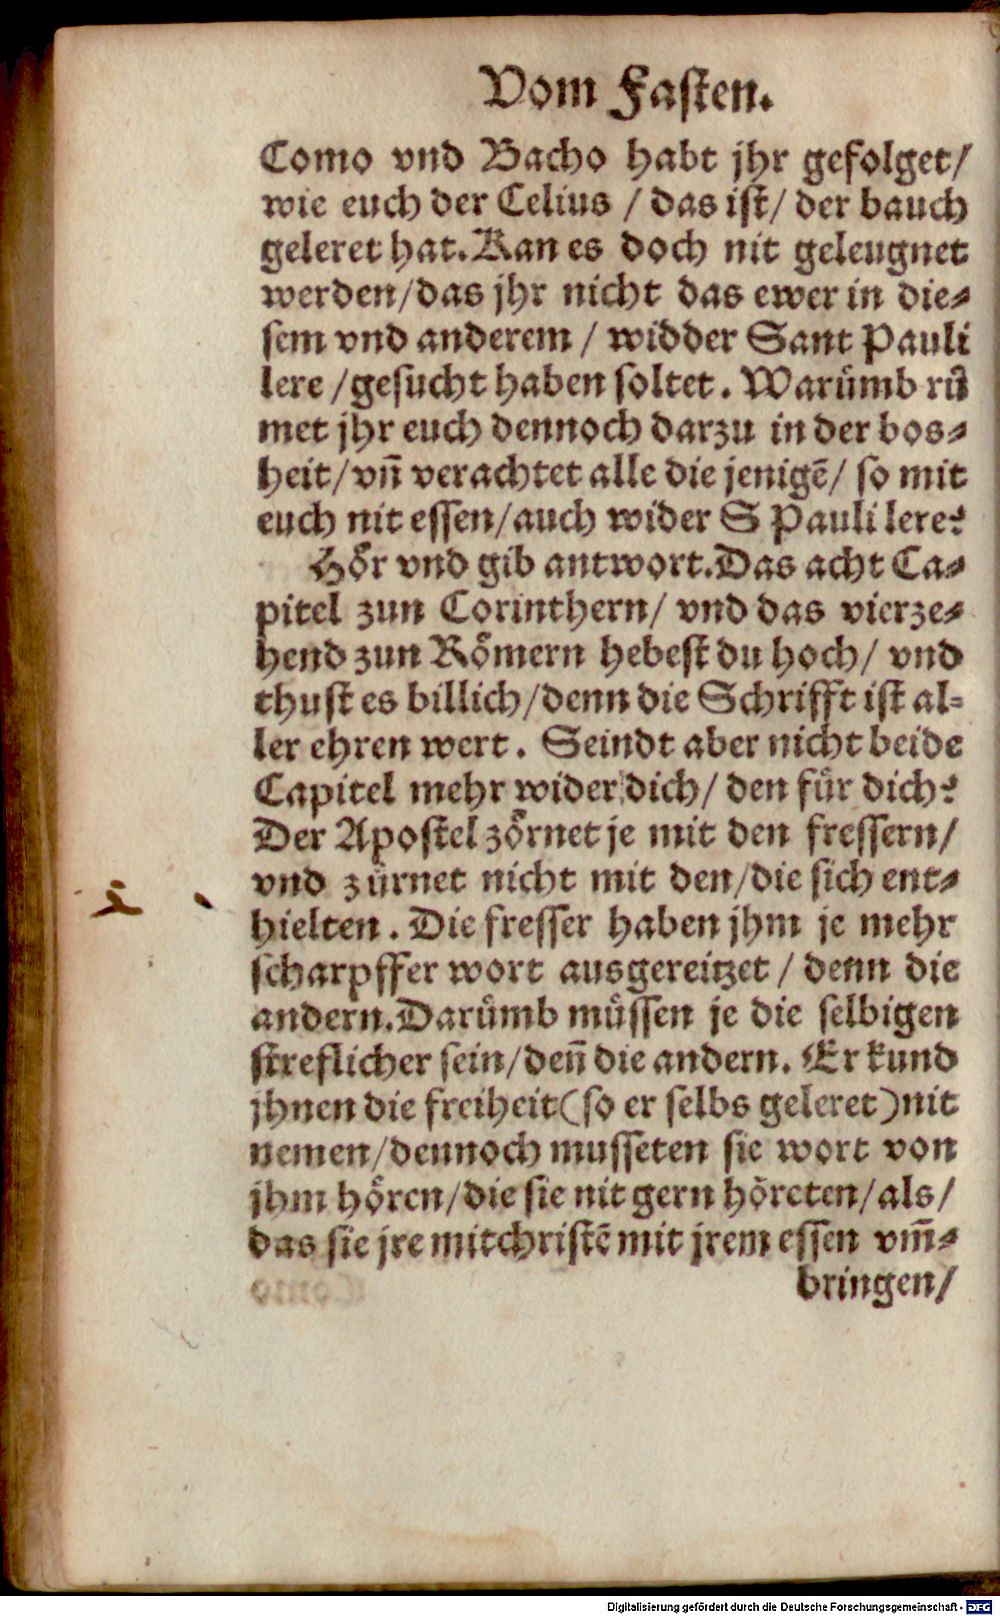 Vom Fasten.
Como vnd Bacho habt jhr gefolget/
wie euch der Celius / das ist/ der bauch
geleret hat. Kan es doch nit geleugnet
werden/das jhr nicht das ewer in die⸗
sem vnd anderem / widder Sant Pauli
lere /gesucht haben soltet. Warümb rů
met jhr euch dennoch darzu in der bos⸗
heit/ vñ verachtet alle die jenigẽ/ so mit
euch nit essen/auch wider S Pauli lere?
Hör vnd gib antwort. Das acht Ca⸗
pitel zun Corinthern/ vnd das vierze⸗
hend zun Römern hebest du hoch/ vnd
thust es billich/denn die Schrifft ist al⸗
ler ehren wert. Seindt aber nicht beide
Capitel mehr wider dich/ den für dich?
Der Apostel zörnet je mit den fressern/
vnd zürnet nicht mit den/die sich ent⸗
hielten. Die fresser haben jhm je mehr
scharpffer wort ausgereitzet / denn die
andern. Darümb müssen je die selbigen
streflicher sein/deñ die andern. Er kund
jhnen die freiheit(so er selbs geleret)nit
nemen/dennoch musseten sie wort von
jhm hören/die sie nit gern höreten/als/
das sie jre mitchristẽ mit jrem essen vm̃⸗
bringen/
Digitalisierung gefördert durch die Deutsche Forschungsgemeinschaft - DFG